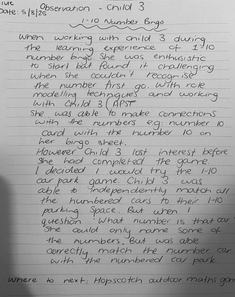 Observation - Child 3
Date: 5/8/25
1-10 Number Bingo
When working with child 3 during
the learning experience of 1-10
number bingo she was enthusiastic
to start but found it challenging
when she couldn't recognise
the number first go. With role
modelling techniques and working
with child 3 (APST
She was able to make connections
with the numbers e.g. number 10
card with the number 10 on
her bingo sheet.
However Child 3 lost interest before
she had completed the game.
I decided I would try the 1-10
car park game. Child 3 was
able to independently match all
the numbered cars to their 1-10
parking space. But when
question What number is that car
She could only name some of
the numbers. But was able
correctly match the number car
with the numbered car park
Where to next: Hopscotch outdoor maths gam